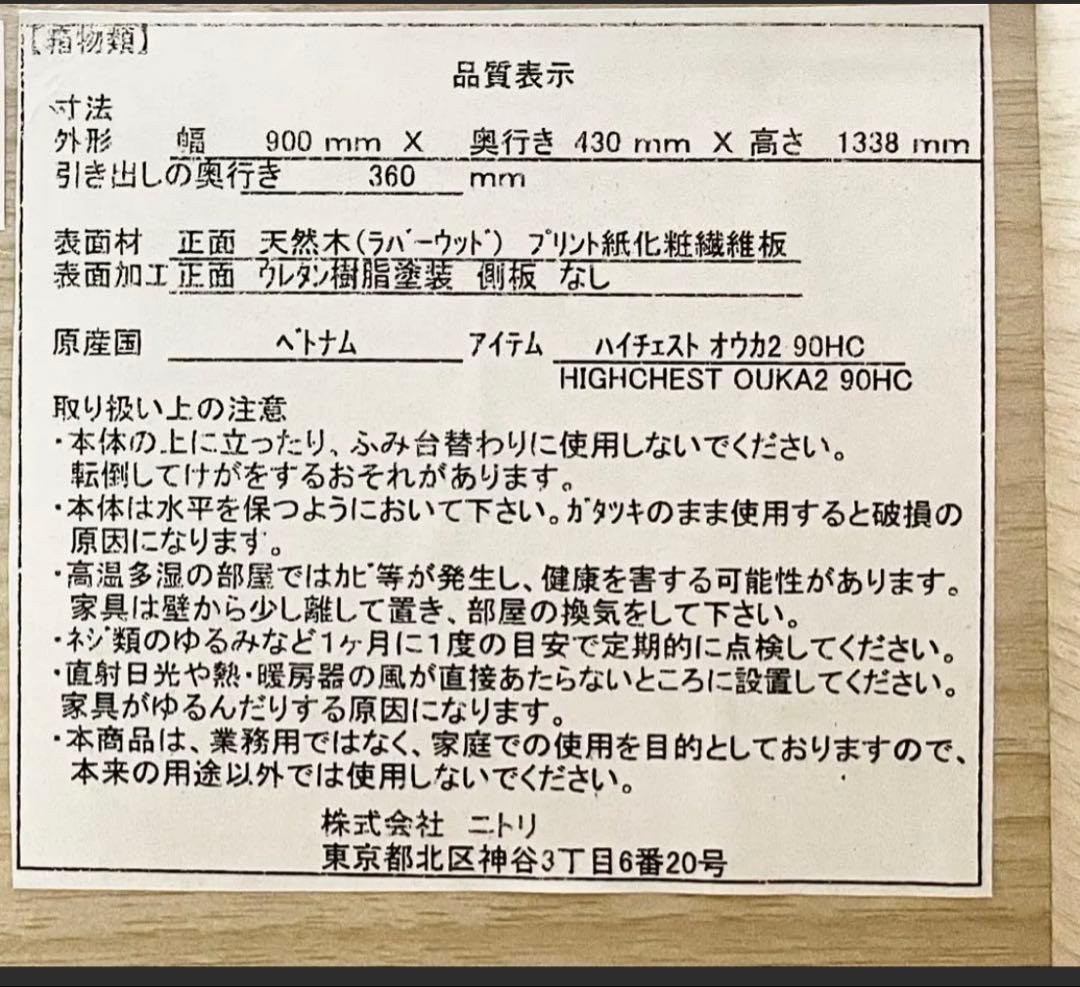 【箱物類】
品質表示
寸法
外形 幅 900 mm X 奥行き 430 mm X 高さ 1338 mm
引き出しの奥行き 360 mm
表面材 正面 天然木(ﾗﾊﾞｰｳｯﾄﾞ) ﾌﾟﾘﾝﾄ紙化粧繊維板
表面加工 正面 ｳﾚﾀﾝ樹脂塗装 側板 なし
原産国 ﾍﾞﾄﾅﾑ ｱｲﾃﾑ ﾊｲﾁｪｽﾄ ｵｳｶ2 90HC
HIGHCHEST OUKA2 90HC
取り扱い上の注意
・本体の上に立ったり、ふみ台替わりに使用しないでください。
転倒してけがをするおそれがあります。
・本体は水平を保つようにおいて下さい。ｶﾞﾀﾂｷのまま使用すると破損の
原因になります。
・高温多湿の部屋ではｶﾋﾞ等が発生し、健康を害する可能性があります。
家具は壁から少し離して置き、部屋の換気をして下さい。
・ﾈｼﾞ類のゆるみなど1ヶ月に1度の目安で定期的に点検してください。
・直射日光や熱・暖房器の風が直接あたらないところに設置してください。
家具がゆるんだりする原因になります。
・本商品は、業務用ではなく、家庭での使用を目的としておりますので、
本来の用途以外では使用しないでください。
株式会社 ニトリ
東京都北区神谷3丁目6番20号